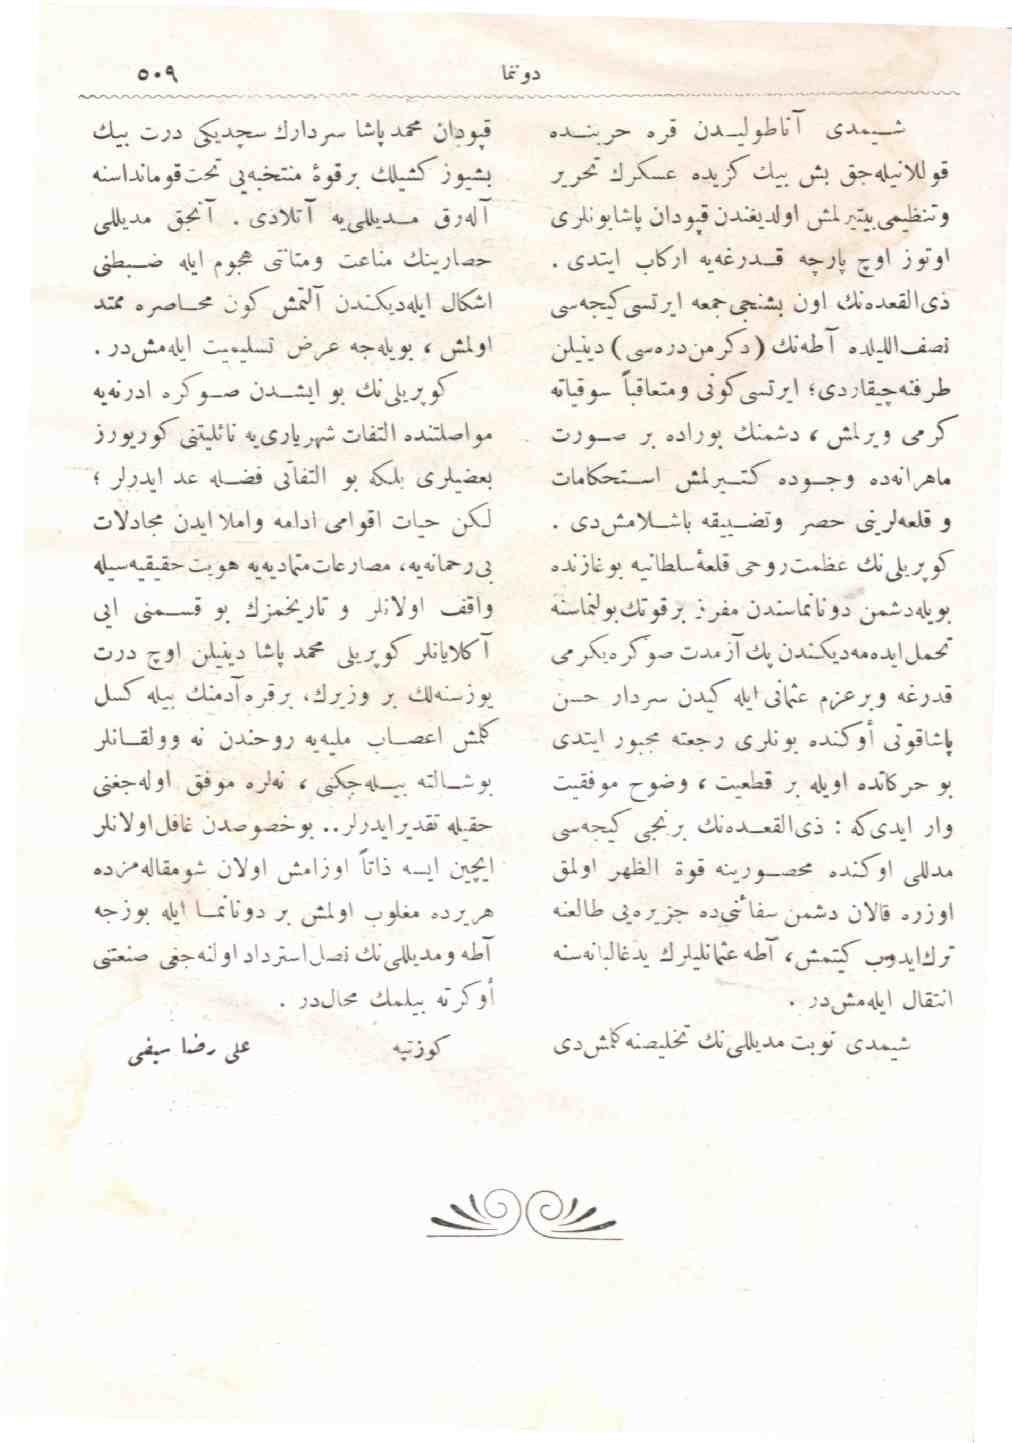 دوننما
٥٠٩
شیمدی آناطولیدن قره حربنده
قوللانیله‌جق بش بیك كزیده عسكرك تحریر
وتنظیمی بیتیرلمش اولدیغندن قپودان پاشا بونلری
اوتوز اوچ پارچه قدرغه‌یه اركاب ایتدی .
ذی القعده‌نك اون بشنجی جمعه ایرتسی كیجه‌سی
نصف اللیلده آطه‌نك (دكرمن دره‌سی) دینیلن
طرفنه چیقاردی؛ ایرتسی كونی ومتعاقباً سوقیاته
كرمی ویرلمش ، دشمنك بوراده بر صورت
ماهرانه‌ده وجوده كتیرلمش استحكامات
و قلعه‌لرینی حصر وتضییقه باشلامش‌دی .
كوپریلی‌نك عظمت روحی قلعهٔ سلطانیه بوغازنده
بویله دشمن دونانماسندن مفرز بر قوتك بولنماسنه
تحمل ایده‌مه‌دیكندن پك آز مدت صوكره یكرمی
قدرغه وبر عزم عثمانی ایله كیدن سردار حسن
پاشا قوتی أوكنده بونلری رجعته مجبور ایتدی
بو حركاتده اویله بر قطعیت ، وضوح موفقیت
وار ایدی‌كه : ذی القعده‌نك برنجی كیجه‌سی
مدللی اوكنده محصورینه قوة الظهر اولمق
اوزره قالان دشمن سفائنی‌ده جزیره‌یی طالعنه
ترك ایدوب كیتمش، آطه عثمانلیلرك ید غالبانه‌سنه
انتقال ایله‌مش‌در .
شیمدی نوبت مدیللی‌نك تخلیصنه كلمش‌دی
قپودان محمد پاشا سردارك سچدیكی درت بیك
بشیوز كشیلك بر قوهٔ منتخبه‌یی تحت قومانداسنه
آله‌رق مدیللی‌یه آتلادی . آنجق مدیللی
حصارینك مناعت ومتانتی هجوم ایله ضبطنی
اشكال ایله‌دیكندن آلتمش كون محاصره ممتد
اولمش ، بویله‌جه عرض تسلیمیت ایله‌مش‌در .
كوپریلی‌نك بو ایشدن صوكره ادرنه‌یه
مواصلتنده التفات شهریاری‌یه نائلیتنی كوریورز
بعضیلری بلكه بو التفاتی فضله عد ایدرلر ؛
لكن حیات اقوامی ادامه واملا ایدن مجادلات
بی‌رحمانه‌یه، مصارعات متمادیه‌یه هویت حقیقیه‌سیله
واقف اولانلر و تاریخمزك بو قسمنی ایی
آكلایانلر كوپریلی محمد پاشا دینیلن اوچ درت
یوز سنه‌لك بر وزیرك، بر قره آدمنك بیله كسل
كلمش اعصاب ملیه‌یه روحندن نه وولقانلر
بوشالته بیله‌جكنی ، نه‌لره موفق اوله‌جغنی
حقیله تقدیر ایدرلر .. بو خصوصدن غافل اولانلر
ایچین ایسه ذاتاً اوزامش اولان شو مقاله‌مزده
هر یرده مغلوب اولمش بر دونانما ایله بوزجه
آطه ومدیللی‌نك نصل استرداد اولنه‌جغی صنعتنی
أوكرته بیلمك محال‌در .
كوزتپه
علی رضا سیفی